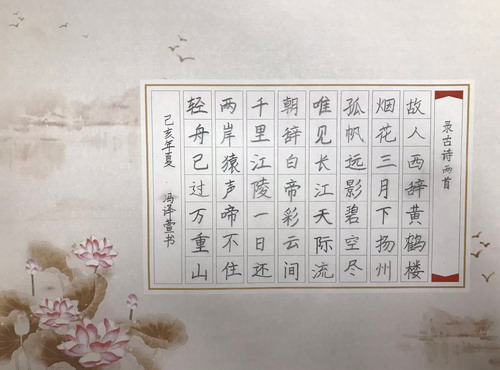 录古诗两首
故人西辞黄鹤楼
烟花三月下扬州
孤帆远影碧空尽
唯见长江天际流
朝辞白帝彩云间
千里江陵一日还
两岸猿声啼不住
轻舟已过万重山
己亥年夏 冯泽萱书